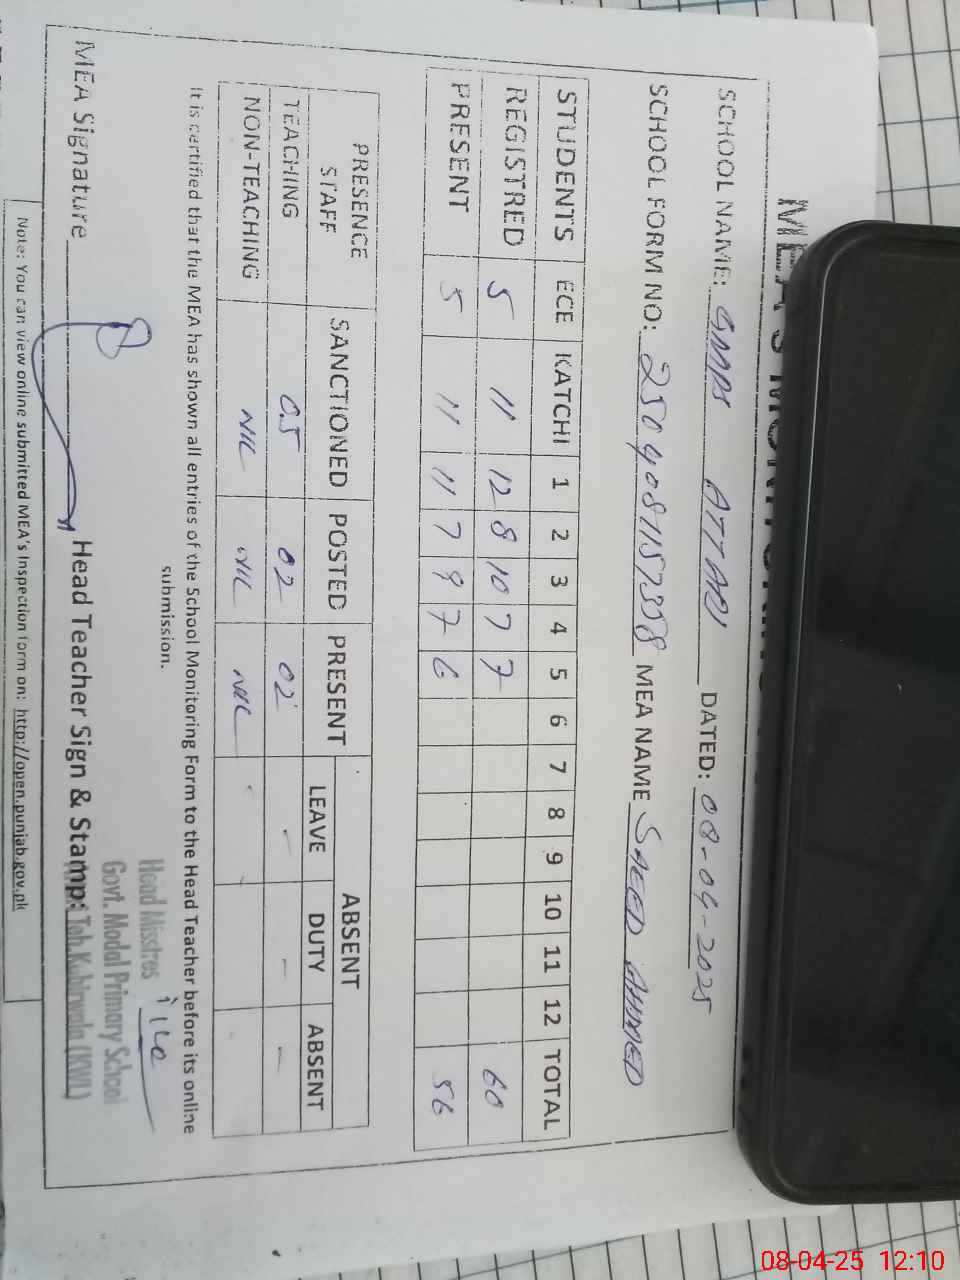 MEA'S MONITORING
SCHOOL NAME: GMPS ATTARI DATED: 08-04-2025
SCHOOL FORM NO: 2504087157358 MEA NAME SAEED AHMED
STUDENTS ECE KATCHI 1 2 3 4 5 6 7 8 9 10 11 12 TOTAL
REGISTRED 5 11 12 8 10 7 7 60
PRESENT 5 11 11 7 9 7 6 56
PRESENCE STAFF SANCTIONED POSTED PRESENT ABSENT
LEAVE DUTY ABSENT
TEACHING 0.5 02 02 - - -
NON-TEACHING NIL NIL NIL
It is certified that the MEA has shown all entries of the School Monitoring Form to the Head Teacher before its online
submission.
Head Misstres
Govt. Modal Primary School
MEA Signature Head Teacher Sign & Stamp: Teh. Kabirwala (KWL)
Note: You can view online submitted MEA's Inspection form on: http://open.punjab.gov.pk
08-04-25 12:10